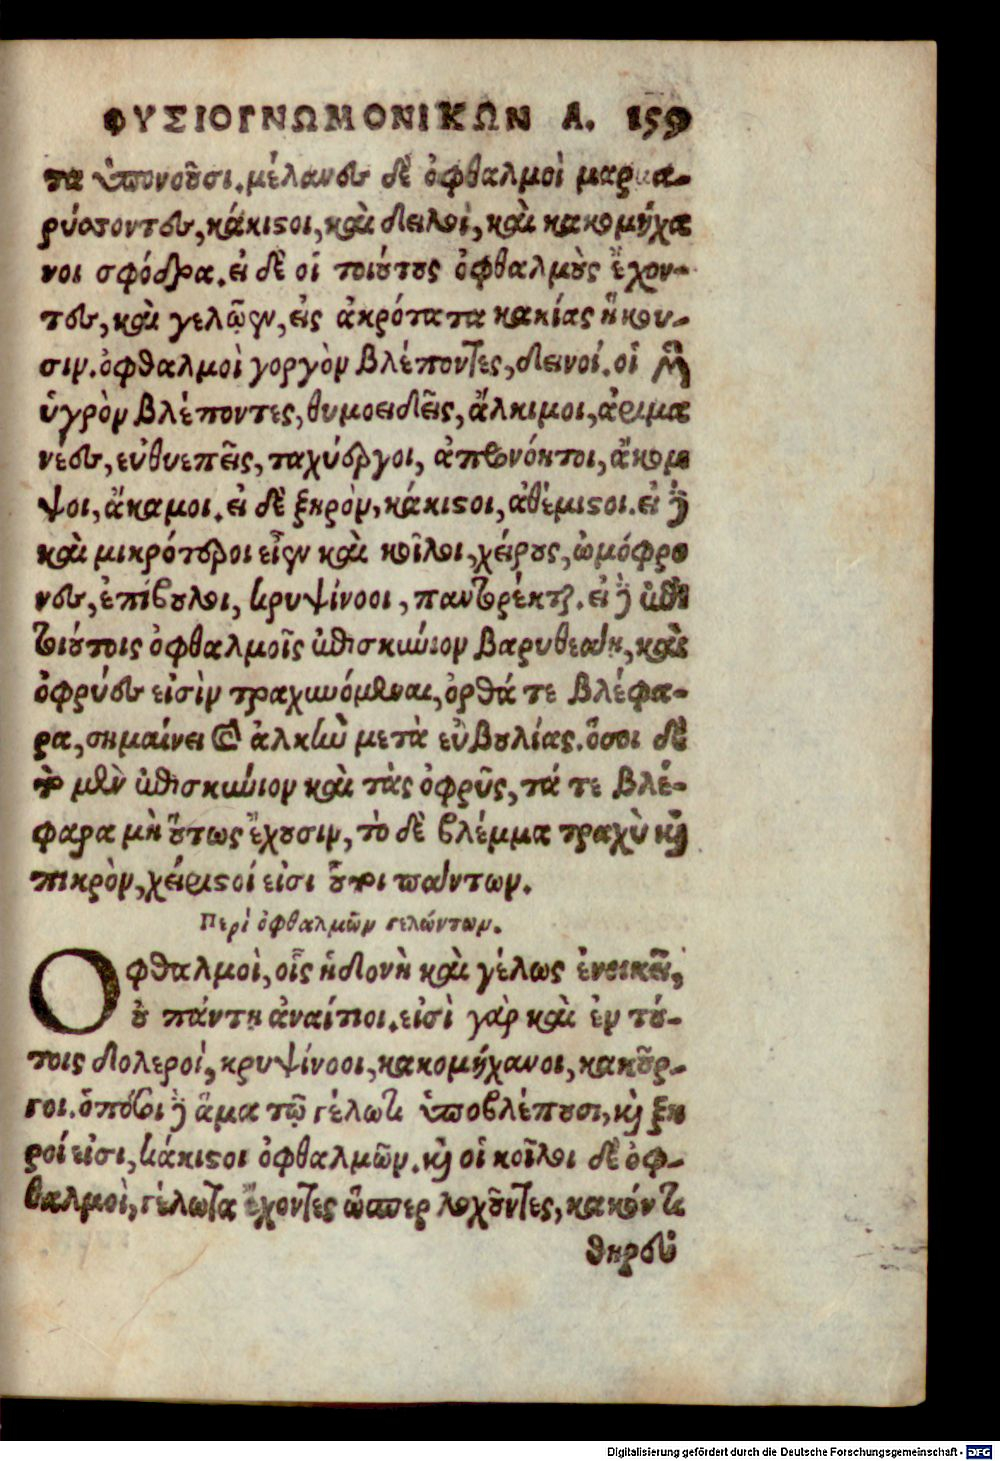 ΦΥΣΙΟΓΝΩΜΟΝΙΚΩΝ Α. 159
τα ὑπονοῦσι. μέλανες δὲ ὀφθαλμοὶ μαρμα-
ρύσσοντες, κάκιστοι, καὶ δειλοὶ, καὶ κακομήχα
νοι σφόδρα. εἰ δὲ οἱ τοιούτους ὀφθαλμοὺς ἔχον-
τες, καὶ γελῷεν, εἰς ἀκρότατα κακίας ἥκου-
σιν. ὀφθαλμοὶ γοργὸν βλέποντες, δεινοί. οἱ μὴν
ὑγρὸν βλέποντες, θυμοειδεῖς, ἄλκιμοι, ἀριμα
νέες, εὐθυεπεῖς, ταχύεργοι, ἀπρονόητοι, ἄκομ
ψοι, ἄκαμοι. εἰ δὲ ξηρὸν, κάκιστοι, ἀθέμιστοι. εἰ δὲ
καὶ μικρότεροι εἶεν καὶ κοῖλοι, χείρους, ὠμόφρο
νες, ἐπίβουλοι, κρυψίνοοι, παντορέκται. εἰ δὲ ἐπὶ
τοιούτοις ὀφθαλμοῖς ἐπισκύνιον βαρυθείη, καὶ
ὀφρύες εἰσὶν τραχυνόμεναι, ὀρθά τε βλέφα-
ρα, σημαίνει τὸ ἀλκὴν μετὰ εὐβουλίας. ὅσοι δὲ
τὸ μὲν ἐπισκύνιον καὶ τὰς ὀφρῦς, τά τε βλέ-
φαρα μὴ οὕτως ἔχουσιν, τὸ δὲ βλέμμα τραχὺ καὶ
πικρὸν, χείριστοί εἰσι οὗτοι πάντων.
Περὶ ὀφθαλμῶν γελώντων.
Οφθαλμοὶ, οἷς ἡδονὴ καὶ γέλως ἐνοικεῖ,
οὐ πάντη ἀναίτιοι. εἰσὶ γὰρ καὶ ἐν τού-
τοις δολεροὶ, κρυψίνοοι, κακομήχανοι, κακοῦρ-
γοι. ὁπόσοι δὲ ἅμα τῷ γέλωτι ὑποβλέπουσι, καὶ ξη
ροί εἰσι, κάκιστοι ὀφθαλμῶν. καὶ οἱ κοῖλοι δὲ ὀφ-
θαλμοὶ, γέλωτα ἔχοντες ὥσπερ λοχοῦντες, κακόν τι
θηρεύ
Digitalisierung gefördert durch die Deutsche Forschungsgemeinschaft - DFG